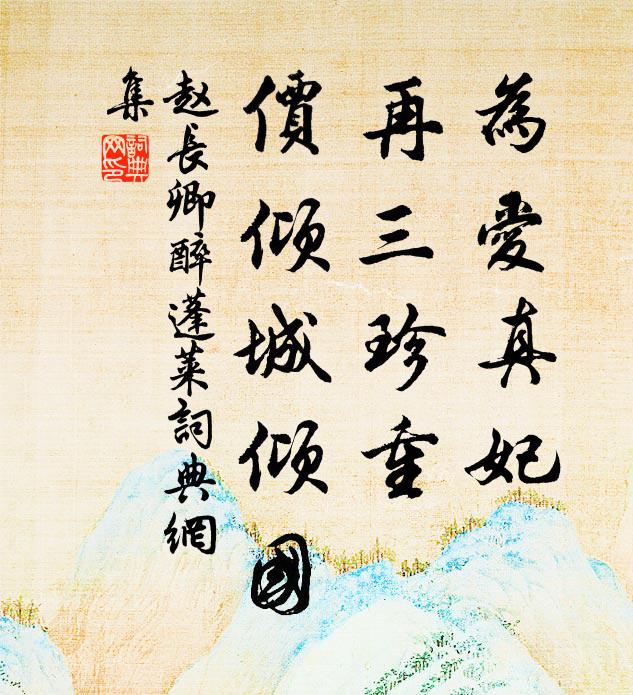 為愛真妃
再三珍重
價傾城傾國
趙長卿醉蓬萊詞典網
集
詞典網印